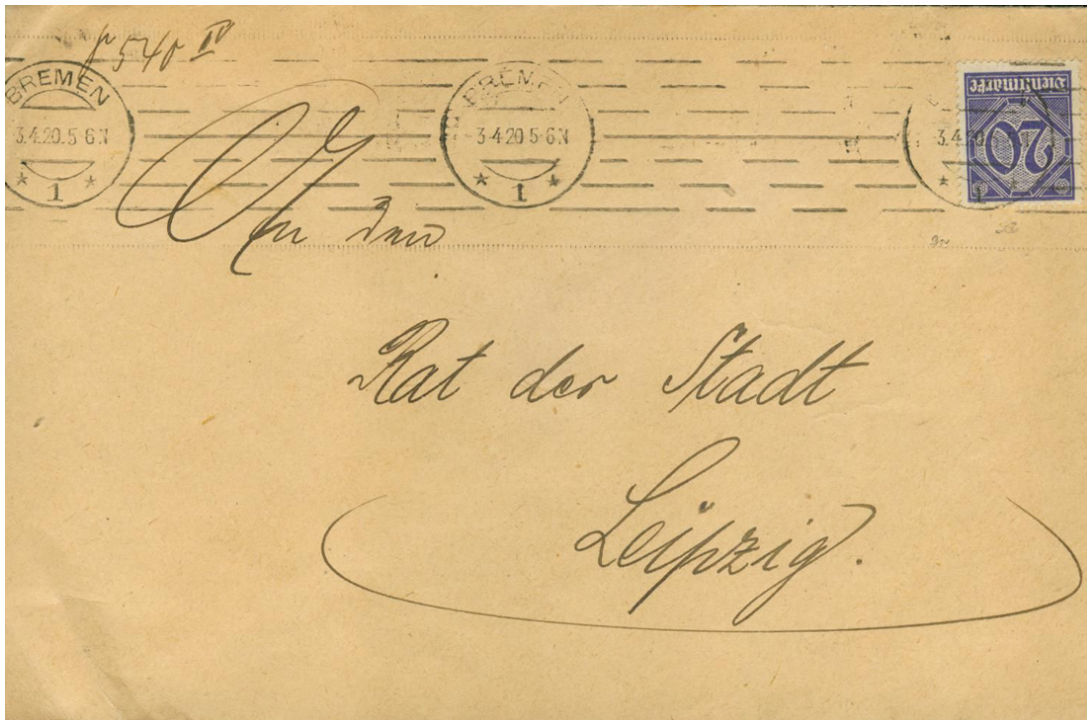 540 IV
BREMEN
3.4.20. 5-6 N
* 1 *
BREMEN
3.4.20 5-6 N
* 1 *
3.4.20
1
Dienstmarke
20
An den
Rat der Stadt
Leipzig.